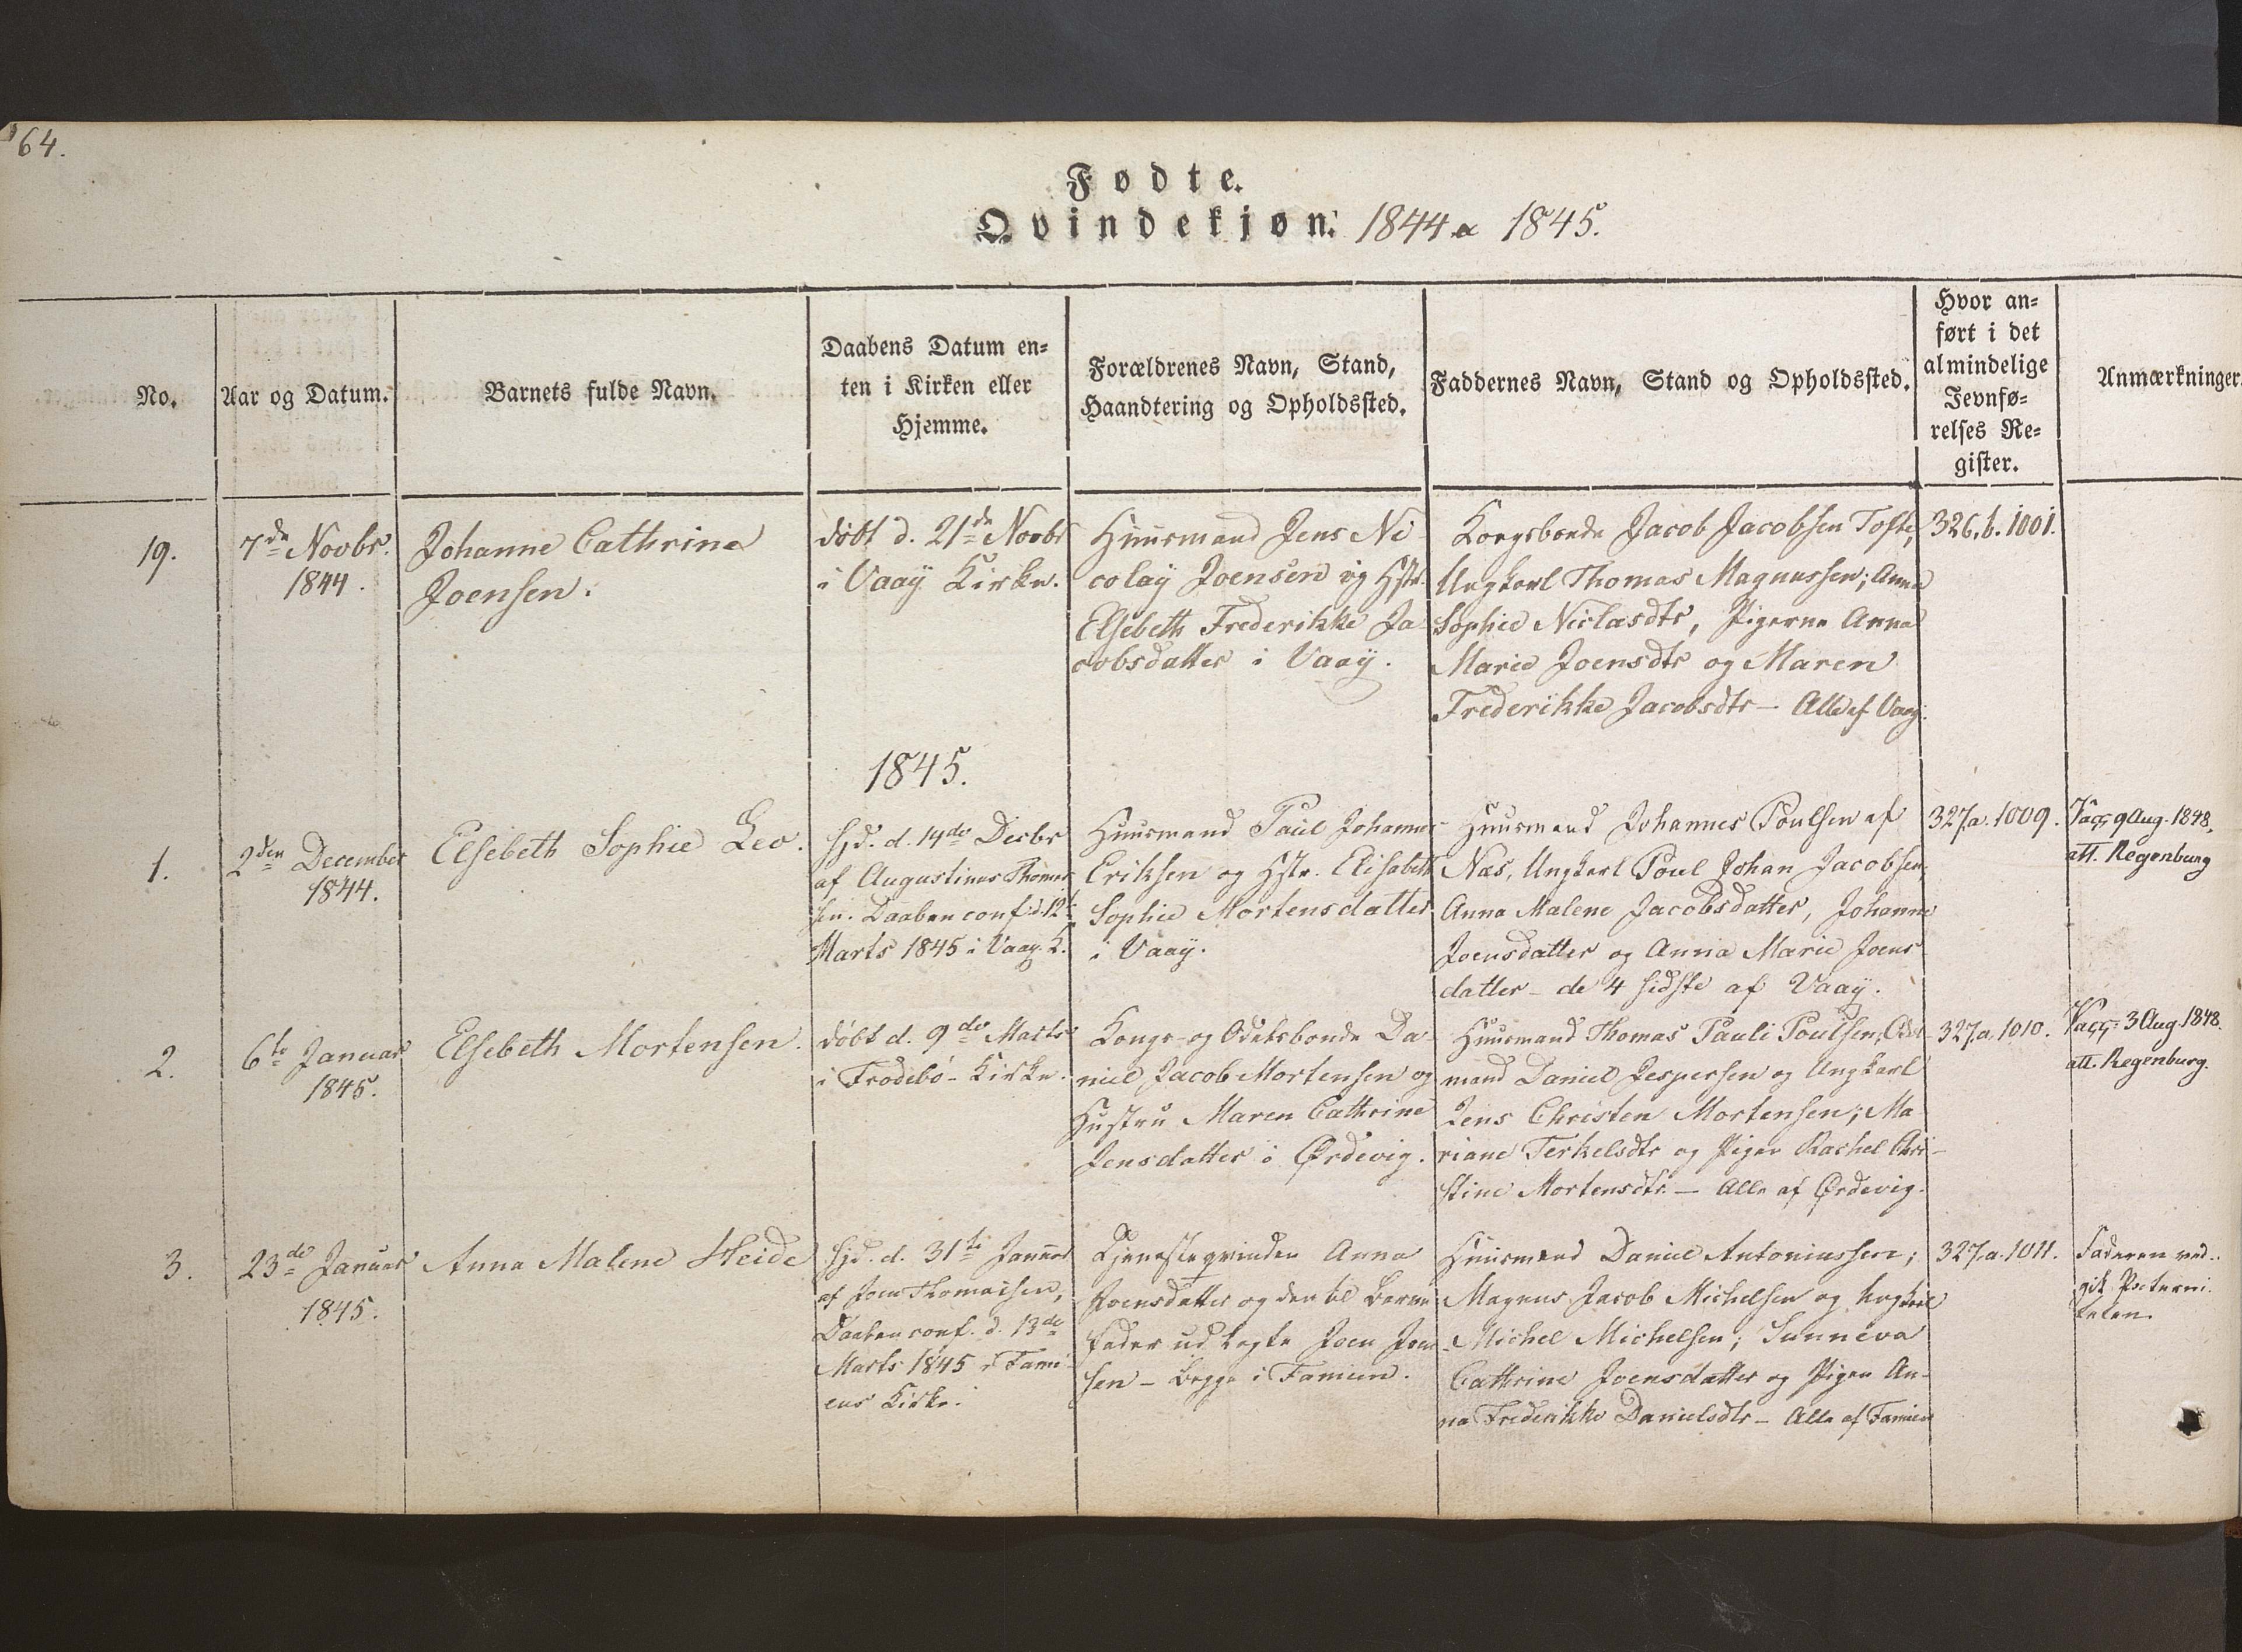 64.
Fødte.
Qvindekjøn. 1844 & 1845.
No.
Aar og Datum.
Barnets fulde Navn.
Daabens Datum en-
ten i Kirken eller
Hjemme.
Forældrenes Navn, Stand,
Haandtering og Opholdssted.
Faddernes Navn, Stand og Opholdssted.
Hvor an-
ført i det
almindelige
Jevnfø-
relses Re-
gister.
Anmærkninger.
19.
7de Novbr.
1844.
Johanne Cathrine
Joensen.
døbt d. 21de Novbr
i Vaaÿ Kirke.
Huusmand Jens Ni-
colaÿ Joensen og Hstr.
Elsebeth Frederikke Ja
cobsdatter i Vaaÿ.
Kongsbonde Jacob Jacobsen Tofte,
Ungkarl Thomas Magnussen; Anna
Sophie Niclasdtr, Pigerne Anna
Marie Joensdtr og Maren
Frederikke Jacobsdtr – Alle af Vaaÿ.
326.b.1001.
1845.
1.
2den December
1844.
Elsebeth Sophie Leo.
Hjd. d. 14de Decbr
af Augustinus Thomas-
sen. Daaben conf. d. 12te
Marts 1845 i Vaaÿ K.
Huusmand Paul Johannes
Eriksen og Hstr. Elisabeth
Sophie Mortensdatter
i Vaaÿ.
Huusmand Johannes Poulsen af
Næs, Ungkarl Poul Johan Jacobsen,
Anna Malene Jacobsdatter, Johanne
Joensdatter og Anna Marie Joens
datter – de 4 sidste af Vaaÿ.
327.a.1009.
Vacc. 9 Aug. 1848.
att. Regenburg
2.
6te Januar
1845.
Elsebeth Mortensen.
døbt d. 9de Marts
i Frodebö-Kirke.
Kongs- og Odelsbonde Da
niel Jacob Mortensen og
Hustru Maren Cathrine
Jensdatter i Ørdevig.
Huusmand Thomas Pauli Poulsen,
mand Daniel Jespersen og Ungkarl
Jens Christen Mortensen; Ma
riane Terkelsdtr og Pigen Rachel Chri-
stine Mortensdtr. – Alle af Ørdevig.
327.a.1010.
Vacc. 3 Aug. 1848.
att. Regenburg.
3.
23de Januar
1845.
Anna Malene Heide
Hjd. d. 31te Januar
af Joen Thomassen,
Daaben conf. d. 13de
Marts 1845 i Fami
ens Kirke.
Tjenesteqvinden Anna
Joensdatter og den til Barne
fader udlagte Joen Joen
sen – Begge i Famien.
Huusmand Daniel Antoniussen;
Magnus Jacob Michelsen og Ungkarl
Michel Michelsen; Sunneva
Cathrine Joensdatter og Pigen An-
na Frederikke Danielsdtr – Alle af Famien
327.a.1011.
Faderen ved-
gik Paterni-
teten.